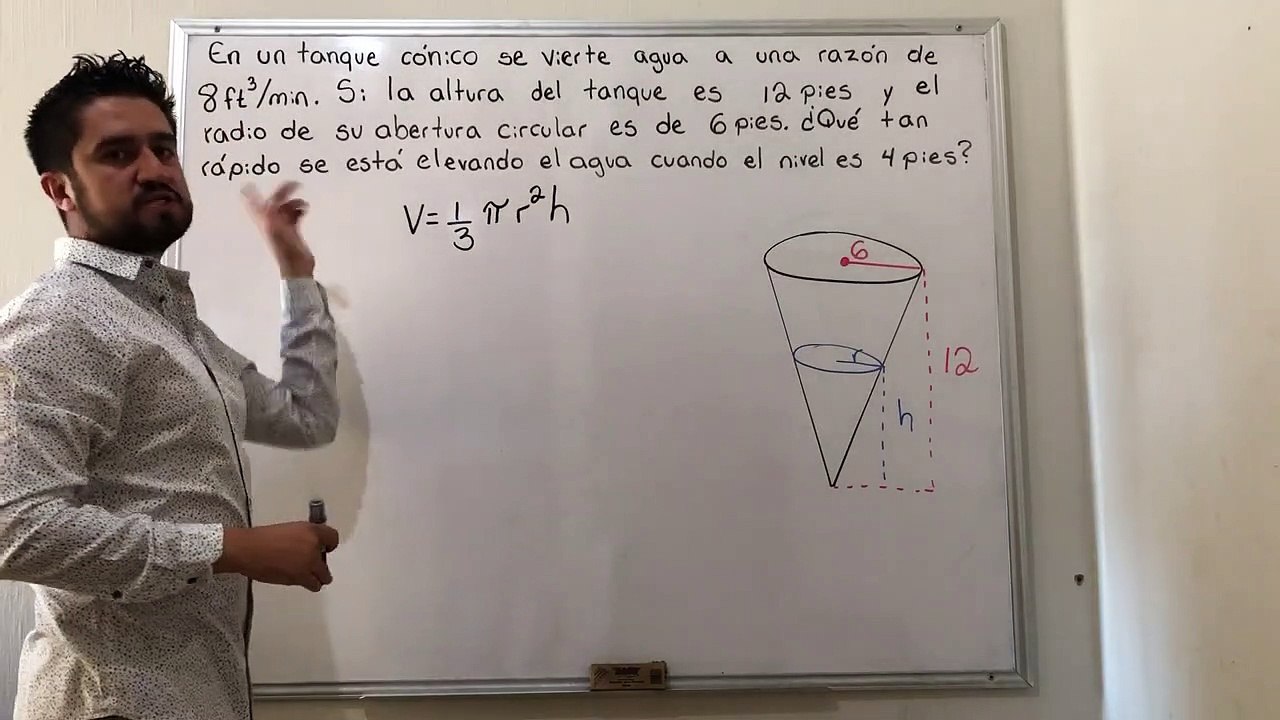 En un tanque cónico se vierte agua a una razón de
8ft³/min. Si la altura del tanque es 12 pies y el
radio de su abertura circular es de 6 pies. ¿Qué tan
rápido se está elevando el agua cuando el nivel es 4 pies?
V= 1/3 π r² h
6
r
12
h